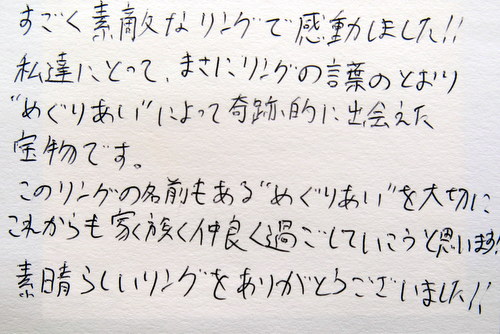 すごく素敵なリングで感動しました!!
私達にとって、まさにリングの言葉のとおり
"めぐりあい"によって奇跡的に出会えた
宝物です。
このリングの名前もある"めぐりあい"を大切に
これからも家族く仲良く過ごしていこうと思います!
素晴らしいリングをありがとうございました!!